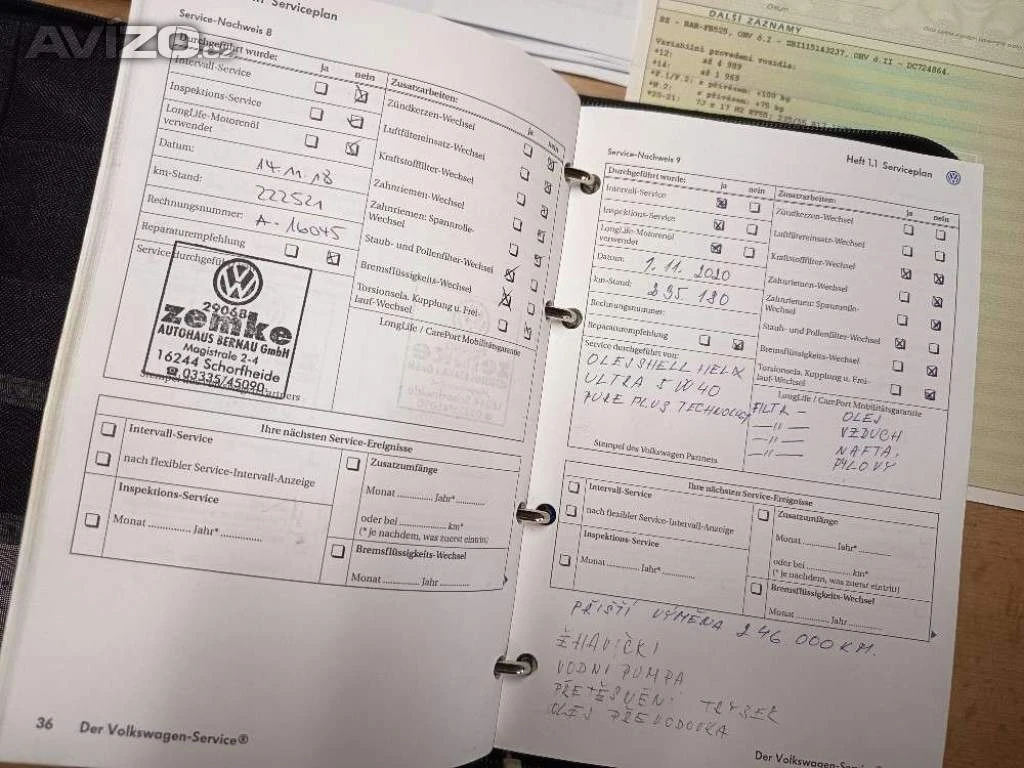 AVIZO.cz
Heft 1.1 Serviceplan
Service-Nachweis 8
Durchgeführt wurde:
ja nein
Intervall-Service
Inspektions-Service
LongLife-Motorenöl
verwendet
Datum:
14.11.18
km-Stand:
222521
Rechnungsnummer:
A-16045
Reparaturempfehlung
Service durchgeführt
29068
zemke
AUTOHAUS BERNAU GmbH
Magistrale 2-4
16244 Schorfheide
☎ 03335/45090
Partners
Zusatzarbeiten:
ja nein
Zündkerzen-Wechsel
Luftfiltereinsatz-Wechsel
Kraftstofffilter-Wechsel
Zahnriemen-Wechsel
Zahnriemen: Spannrolle-
Wechsel
Staub- und Pollenfilter-Wechsel
Bremsflüssigkeits-Wechsel
Torsionsela. Kupplung u. Frei-
lauf-Wechsel
LongLife / CarePort Mobilitätsgarantie
Ihre nächsten Service-Ereignisse
Intervall-Service
nach flexibler Service-Intervall-Anzeige
Inspektions-Service
Monat ............... Jahr* ...............
Zusatzumfänge
Monat ............... Jahr* ...............
oder bei ............... km*
(* je nachdem, was zuerst eintritt)
Bremsflüssigkeits-Wechsel
Monat ............... Jahr ...............
36 Der Volkswagen-Service®
DALŠÍ ZÁZNAMY
Variabilní provedení vozidla:
Service-Nachweis 9
Heft 1.1 Serviceplan
Durchgeführt wurde:
ja nein
Intervall-Service
Inspektions-Service
LongLife-Motorenöl
verwendet
Datum:
1.11.2020
km-Stand:
235.180
Rechnungsnummer:
Reparaturempfehlung
Service durchgeführt von:
OLEJ SHELL HELIX
ULTRA 5W40
PURE PLUS TECHNOLOGY
Stempel des Volkswagen Partners
Zusatzarbeiten:
ja nein
Zündkerzen-Wechsel
Luftfiltereinsatz-Wechsel
Kraftstofffilter-Wechsel
Zahnriemen-Wechsel
Zahnriemen: Spannrolle-
Wechsel
Staub- und Pollenfilter-Wechsel
Bremsflüssigkeits-Wechsel
Torsionsela. Kupplung u. Frei-
lauf-Wechsel
LongLife / CarePort Mobilitätsgarantie
FILTR - OLEJ
-"- VZDUCH
-"- NAFTA,
PYLOVÝ
Ihre nächsten Service-Ereignisse
Intervall-Service
nach flexibler Service-Intervall-Anzeige
Inspektions-Service
Monat ............... Jahr* ...............
Zusatzumfänge
Monat ............... Jahr* ...............
oder bei ............... km*
(* je nachdem, was zuerst eintritt)
Bremsflüssigkeits-Wechsel
Monat ............... Jahr ...............
PŘÍŠTÍ VÝMĚNA 246.000 KM.
ŽHAVIČKI
VODNI PUMPA
PŘETĚSNĚNÍ TRYSEK
OLEJ PŘEVODOVKA
Der Volkswagen-Service